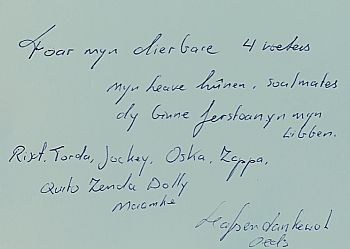 Foar myn dierbare 4 voeters
myn leave hûnen, soulmates
dy binne ferstoan yn myn
libben.
Rixt. Torda, Jockey, Oska, Zappa,
Quito Zenda Dolly
dankewol